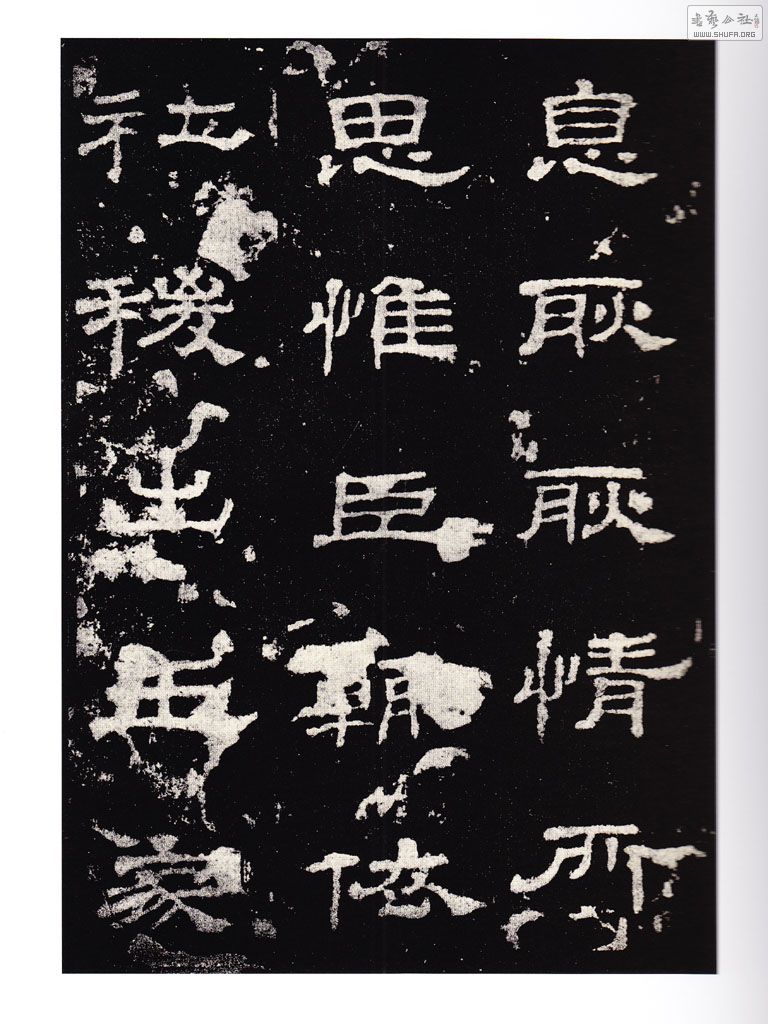 书艺公社
WWW.SHUFA.ORG
息耿耿情所
思惟臣輒依
社稷出王家